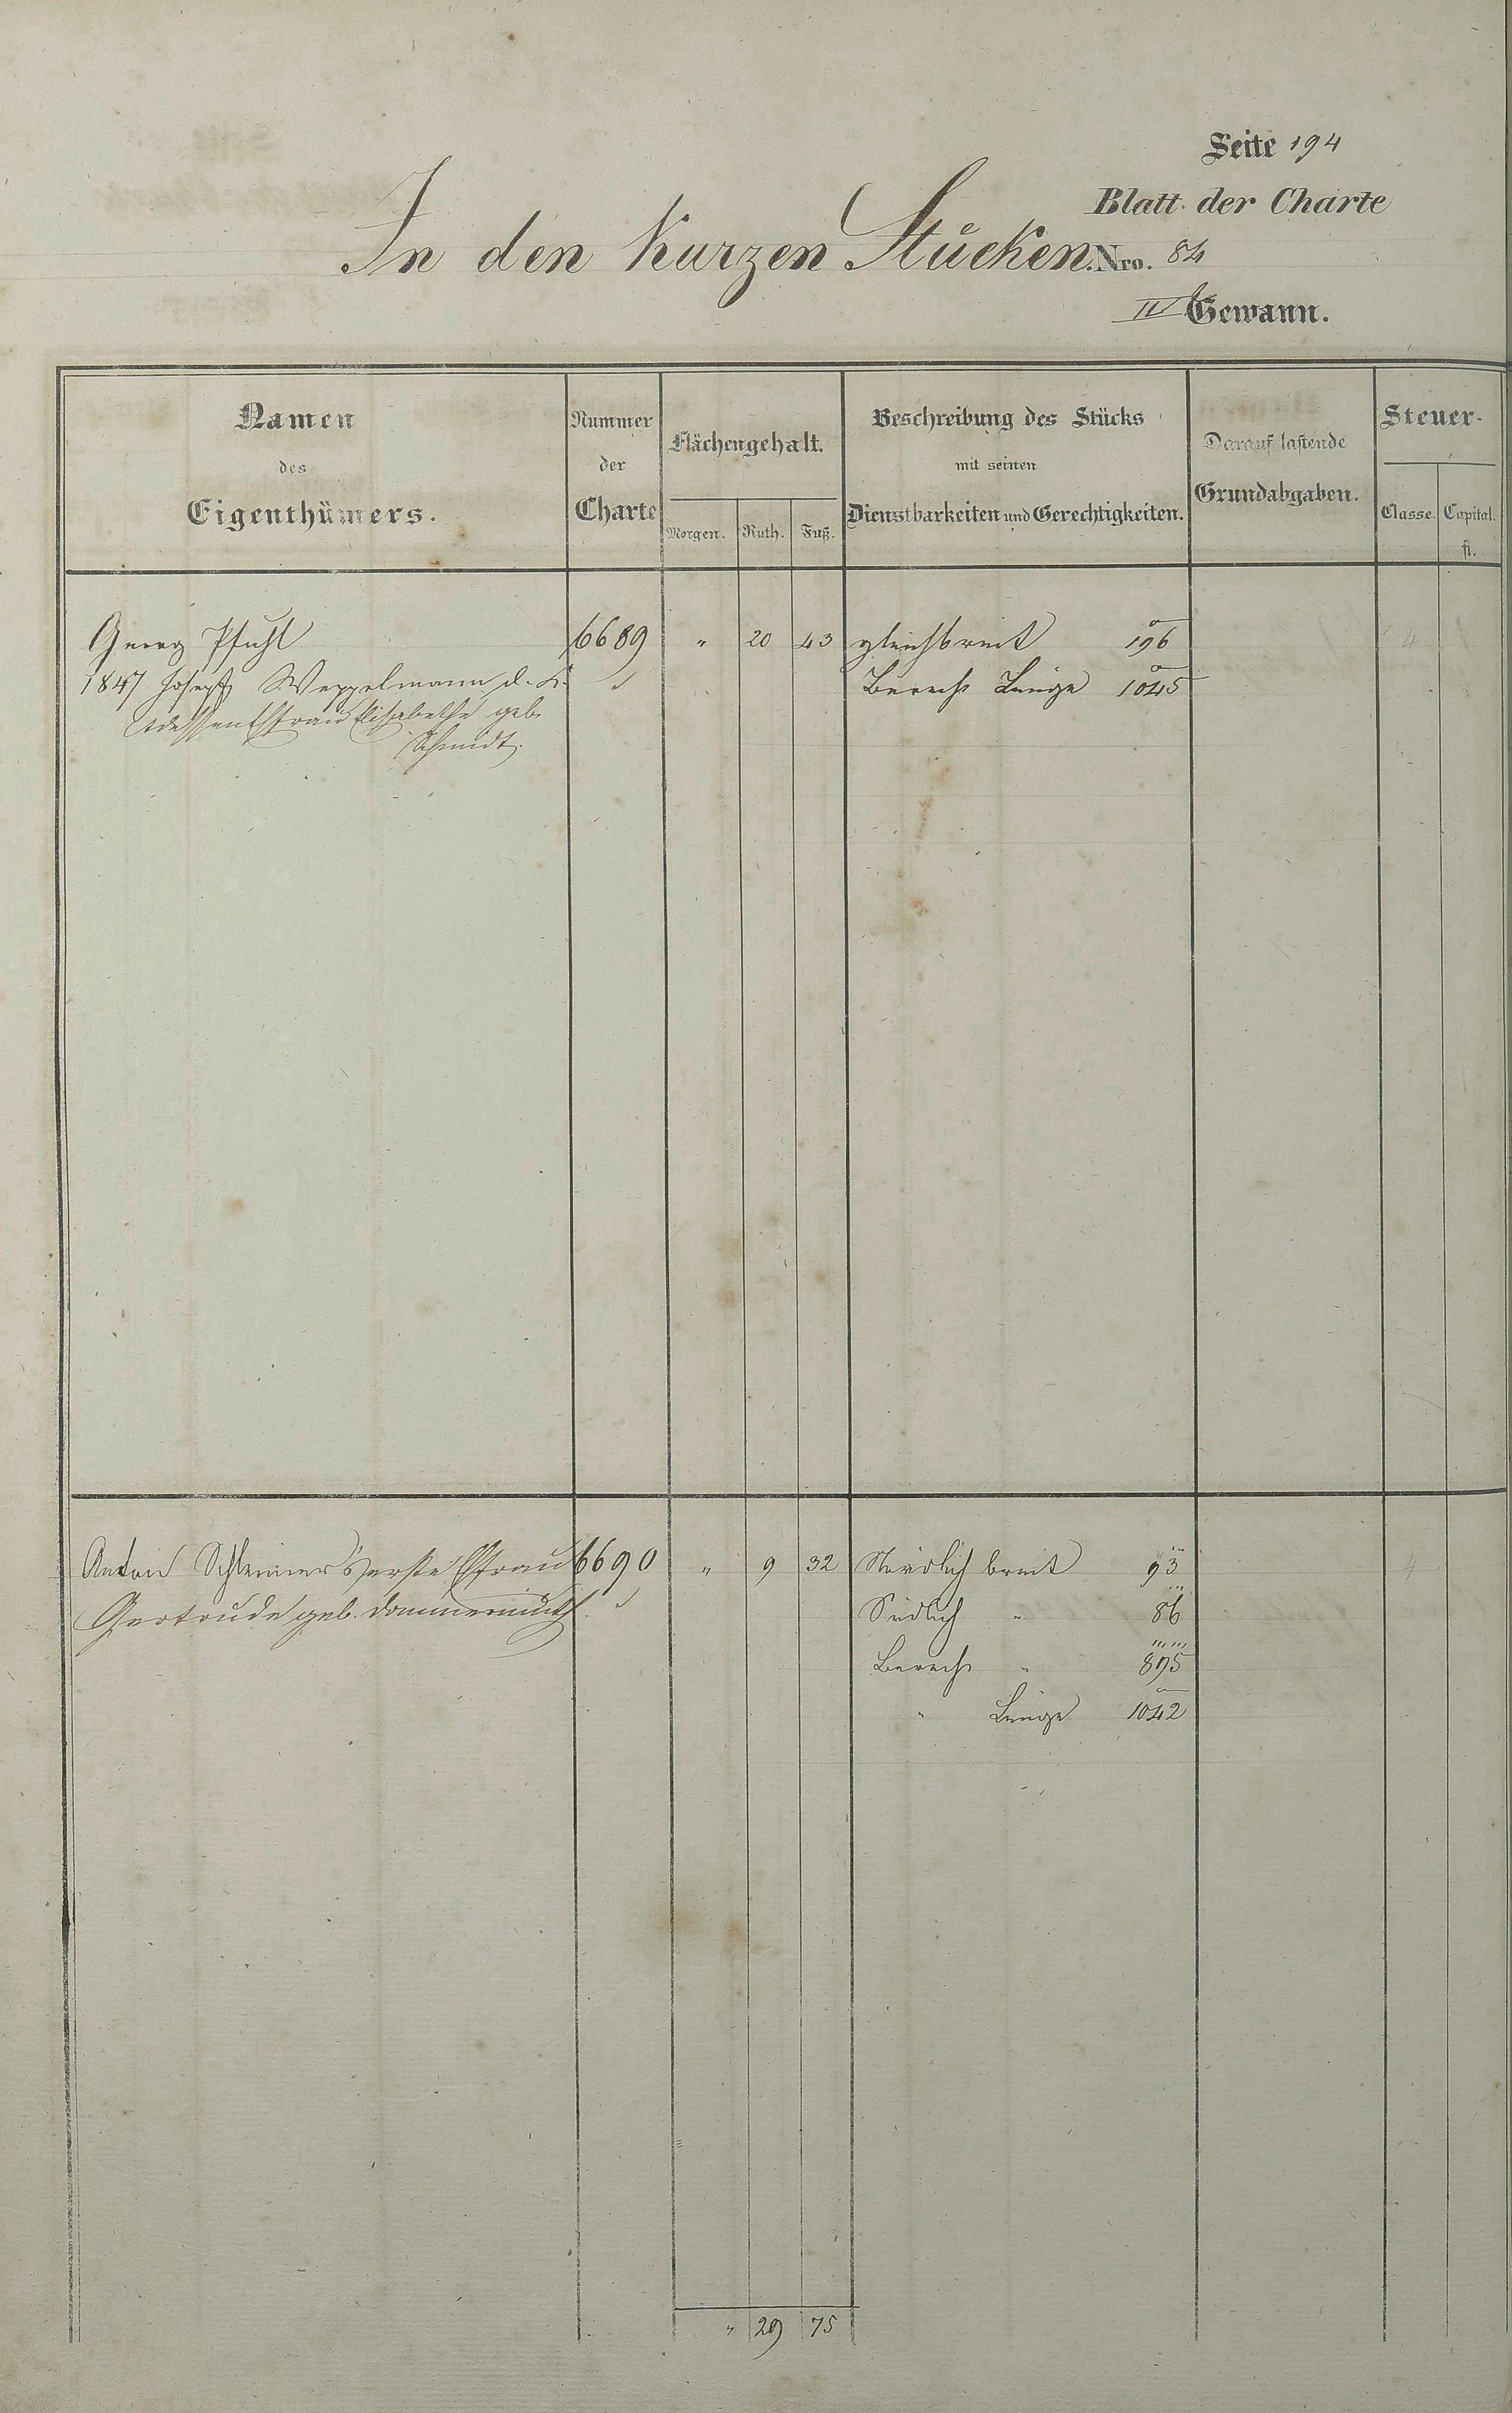 Seite 194
Blatt der Charte
In den kurzen Stücken. Nro. 84
IV Gewann.
Namen des Eigenthümers.
Nummer der Charte
Flächengehalt.
Morgen. Ruth. Fuß.
Beschreibung des Stücks mit seinen Dienstbarkeiten und Gerechtigkeiten.
Darauf lastende Grundabgaben.
Steuer-
Classe. Capital. fl.
Georg Pfuhl 6689 " 20 43 gleichbreit 196 4
1847 Joseph Weppelmann d. K. Berech Länge 1045
dessen Ehfrau Elisabetha geb.
Schmidt.
Anton Schleimer's erste Ehfrau 6690 " 9 32 Nördlich breit 93 4
Gertrude geb. Dommermuth. Südlich " 86
Berech " 895
" Länge 1042
" 29 75